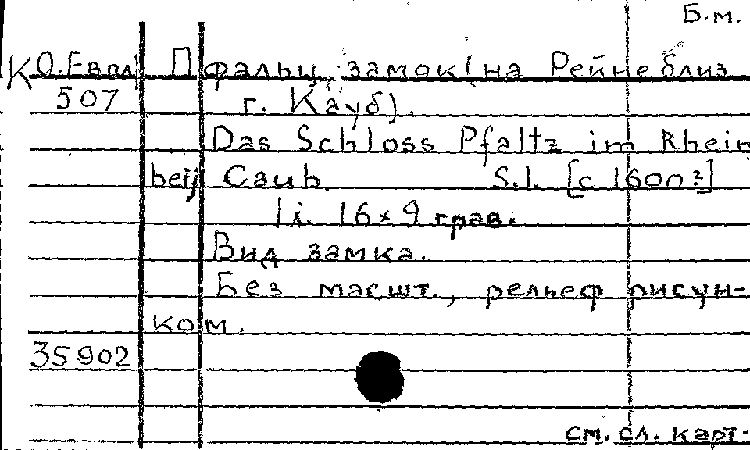 Б.м.
К О.Евр Пфальц, замок (на Рейне близ
507 г. Кауб).
Das Schloss Pfaltz im Rhein
beij Caub. S.l. [c 1600?]
1 i. 16x9 грав.
Вид замка.
Без масшт., рельеф рисун-
ком.
35902
см. сл. карт-